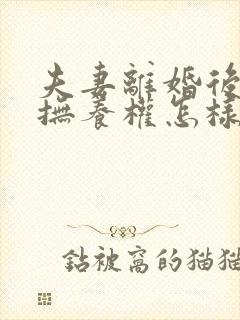 夫妻離婚後
撫養權怎樣
鉆被窩的貓貓